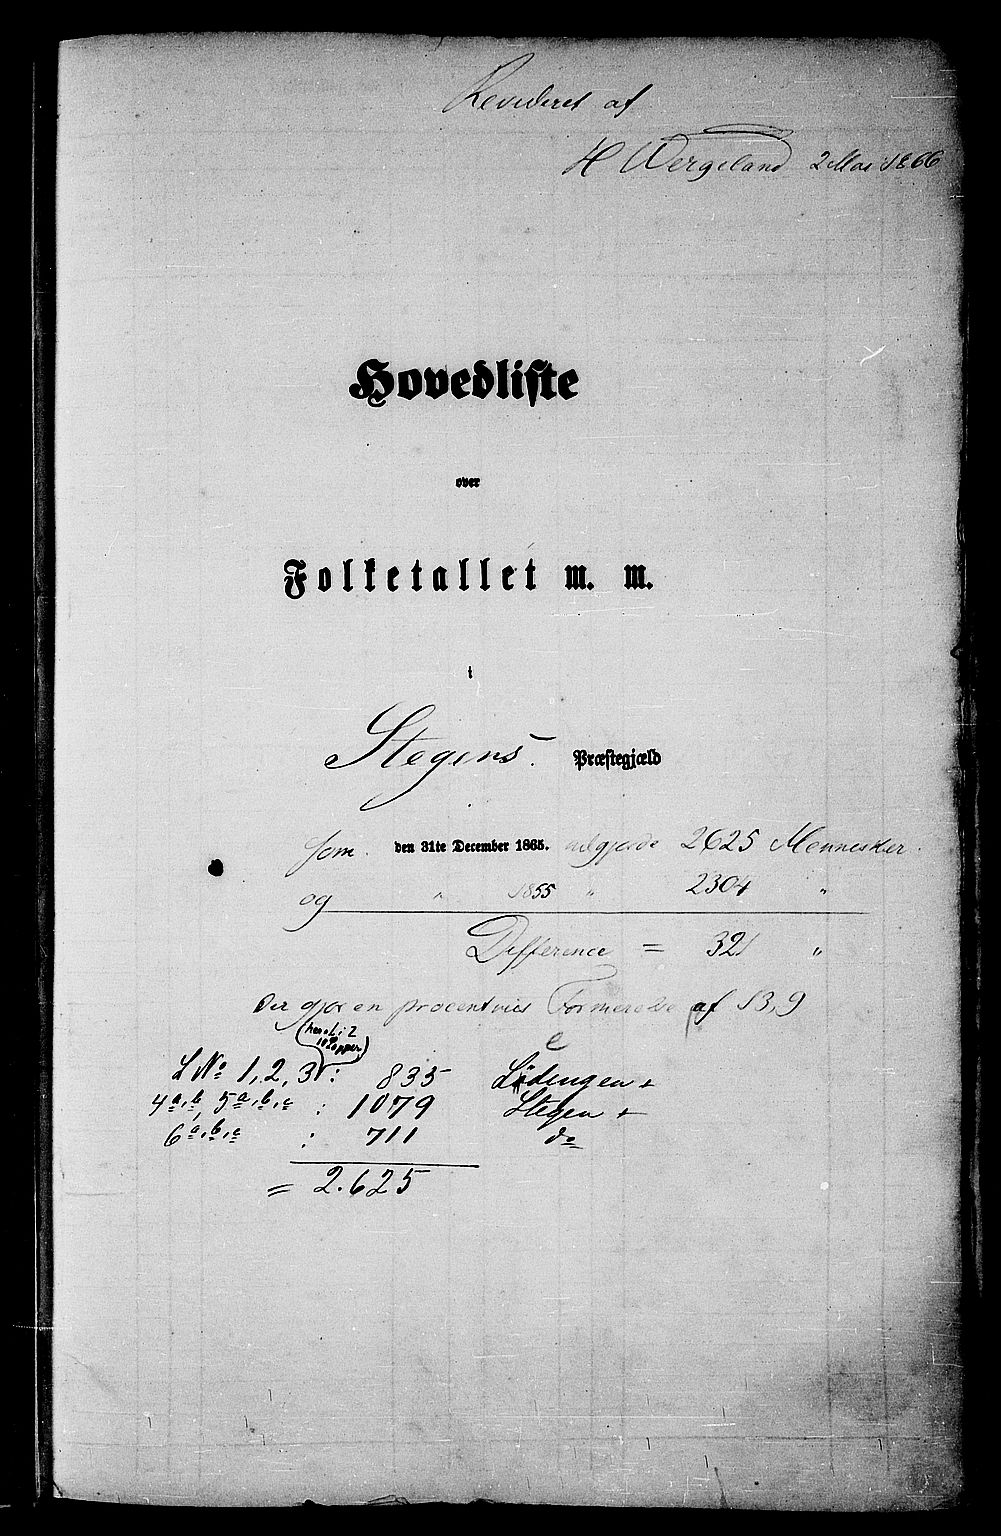 Revideret af
H Wergeland 2 Mai 1866
Hovedliste
over
Folketallet m. m.
i
Stegens Præstegjæld
som den 31te December 1865. udgjorde 2625 Mennesker.
og " 1855 " 2304 "
Difference = 321 "
Der gjør en procentviis Formerelse af 13,9
(heraf i 2
10 Lapper)
e
L No 1, 2, 3: 835 Lødingen +
4a,b, 5a,b,c : 1079 Stegen +
6a,b,c : 711 do
= 2.625